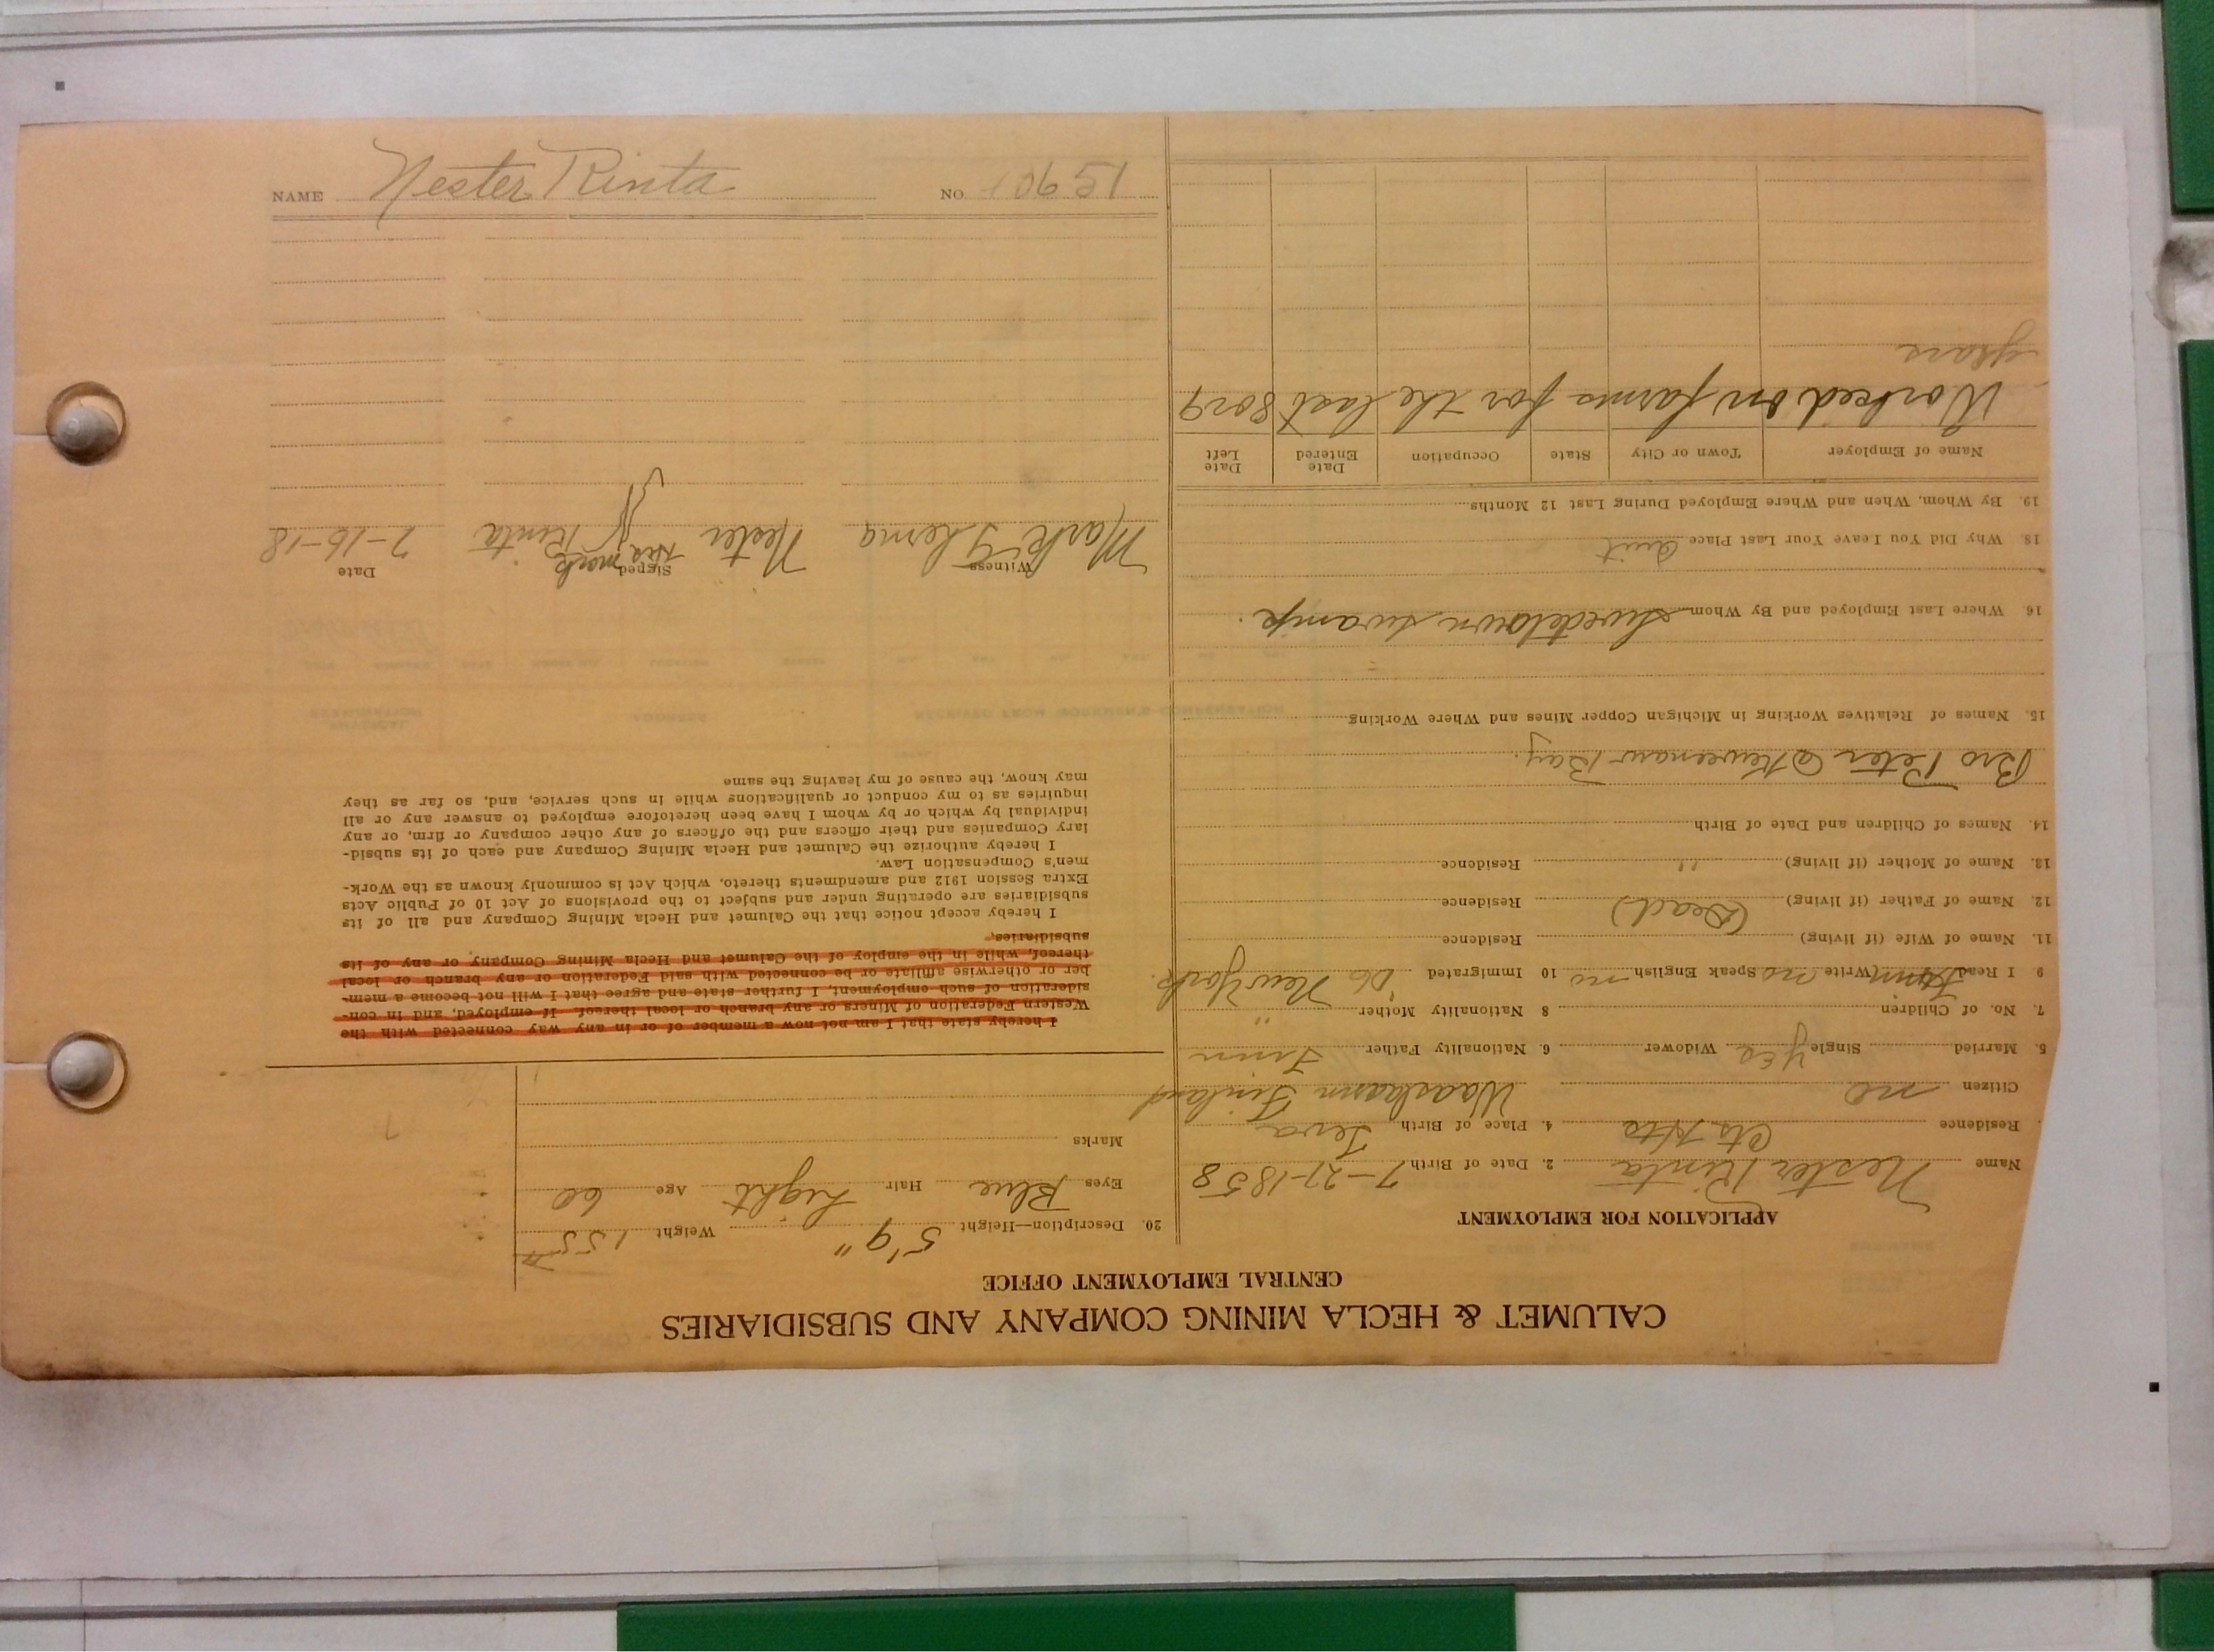 NAME Nester Rinta NO. 10651
CALUMET & HECLA MINING COMPANY AND SUBSIDIARIES
CENTRAL EMPLOYMENT OFFICE
APPLICATION FOR EMPLOYMENT
Name Nester Rinta 2. Date of Birth 7-21-1858
Residence Cts Hts 4. Place of Birth Terva
Citizen no Waasa Finland
5. Married Single Yes Widower 6. Nationality Father Finn
7. No. of Children 8 Nationality Mother "
9 I Read Finn Write no Speak English no 10 Immigrated 06 New York.
11. Name of Wife (if living) Residence
12. Name of Father (if living) (Dead) Residence
13. Name of Mother (if living) " Residence
14. Names of Children and Date of Birth
Bro Peter @ Keweenaw Bay.
15. Names of Relatives Working in Michigan Copper Mines and Where Working
16. Where Last Employed and By Whom Swedetown Swamp.
18. Why Did You Leave Your Last Place Quit
19. By Whom, When and Where Employed During Last 12 Months
Name of Employer Town or City State Occupation Date Entered Date Left
Worked on farms for the last 8 or 9
years
20. Description—Height 5'9" Weight 155#
Eyes Blue Hair Light Age 60
Marks
I hereby state that I am not now a member of or in any way connected with the
Western Federation of Miners or any branch or local thereof. If employed, and in con-
sideration of such employment, I further state and agree that I will not become a mem-
ber or otherwise affiliate or be connected with said Federation or any branch or local
thereof, while in the employ of the Calumet and Hecla Mining Company or any of its
subsidiaries.
I hereby accept notice that the Calumet and Hecla Mining Company and all of its
subsidiaries are operating under and subject to the provisions of Act 10 of Public Acts
Extra Session 1912 and amendments thereto, which Act is commonly known as the Work-
men's Compensation Law.
I hereby authorize the Calumet and Hecla Mining Company and each of its subsid-
iary Companies and their officers and the officers of any other company or firm, or any
individual by which or by whom I have been heretofore employed to answer any or all
inquiries as to my conduct or qualifications while in such service, and, so far as they
may know, the cause of my leaving the same
Witness Signed Date
his mark
Mark Nester Rinta 7-16-18